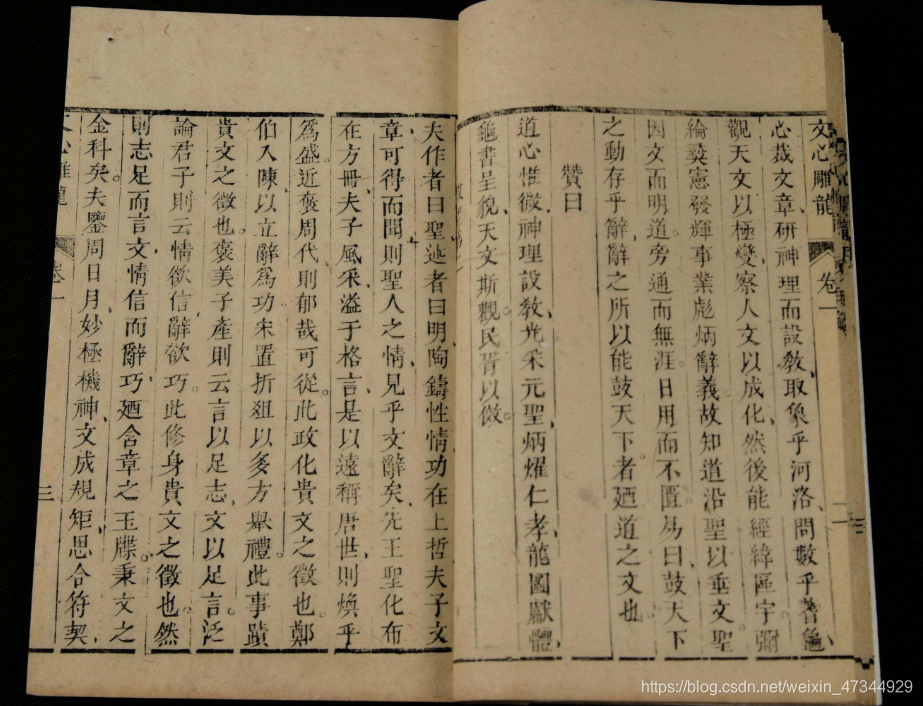 文心雕龍 卷一 二
心裁文章研神理而設教取象乎河洛問數乎蓍龜
觀天文以極變察人文以成化然後能經緯區宇彌
綸彝憲發輝事業彪炳辭義故知道沿聖以垂文聖
因文而明道旁通而無涯日用而不匱易曰鼓天下
之動存乎辭辭之所以能鼓天下者廼道之文也
贊曰
道心惟微神理設教光采元聖炳燿仁孝龍圖獻體
龜書呈貌天文斯觀民胥以傚
夫作者曰聖述者曰明陶鑄性情功在上哲夫子文
章可得而聞則聖人之情見乎文辭矣先王聖化布
在方冊夫子風采溢于格言是以遠稱唐世則煥乎
為盛近褒周代則郁哉可從此政化貴文之徵也鄭
伯入陳以立辭為功宋置折俎以多方舉禮此事蹟
貴文之徵也褒美子產則云言以足志文以足言泛
論君子則云情欲信辭欲巧此修身貴文之徵也然
則志足而言文情信而辭巧廼含章之玉牒秉文之
金科矣夫鑒周日月妙極機神文成規矩思合符契
文心雕龍 卷一 三
https://blog.csdn.net/weixin_47344929